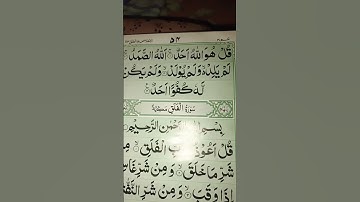 ۵۴
قُلْ هُوَ اللّٰهُ اَحَدٌ ۚ اَللّٰهُ الصَّمَدُ
لَمْ يَلِدْ ۙ وَلَمْ يُوْلَدْ ۙ وَلَمْ يَكُنْ
لَّهٗ كُفُوًا اَحَدٌ
سُوْرَةُ الْفَلَقِ
بِسْمِ الرَّحْمٰنِ الرَّحِيْمِ
قُلْ اَعُوْذُ الْفَلَقِ ۙ مِنْ
شَرِّ مَا خَلَقَ ۙ وَمِنْ شَرِّ
اِذَا وَقَبَ ۙ وَمِنْ شَرِّ